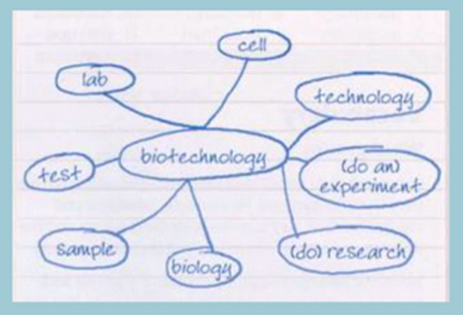 cell
lab
technology
biotechnology
(do an)
experiment
test
sample
biology
(do) research